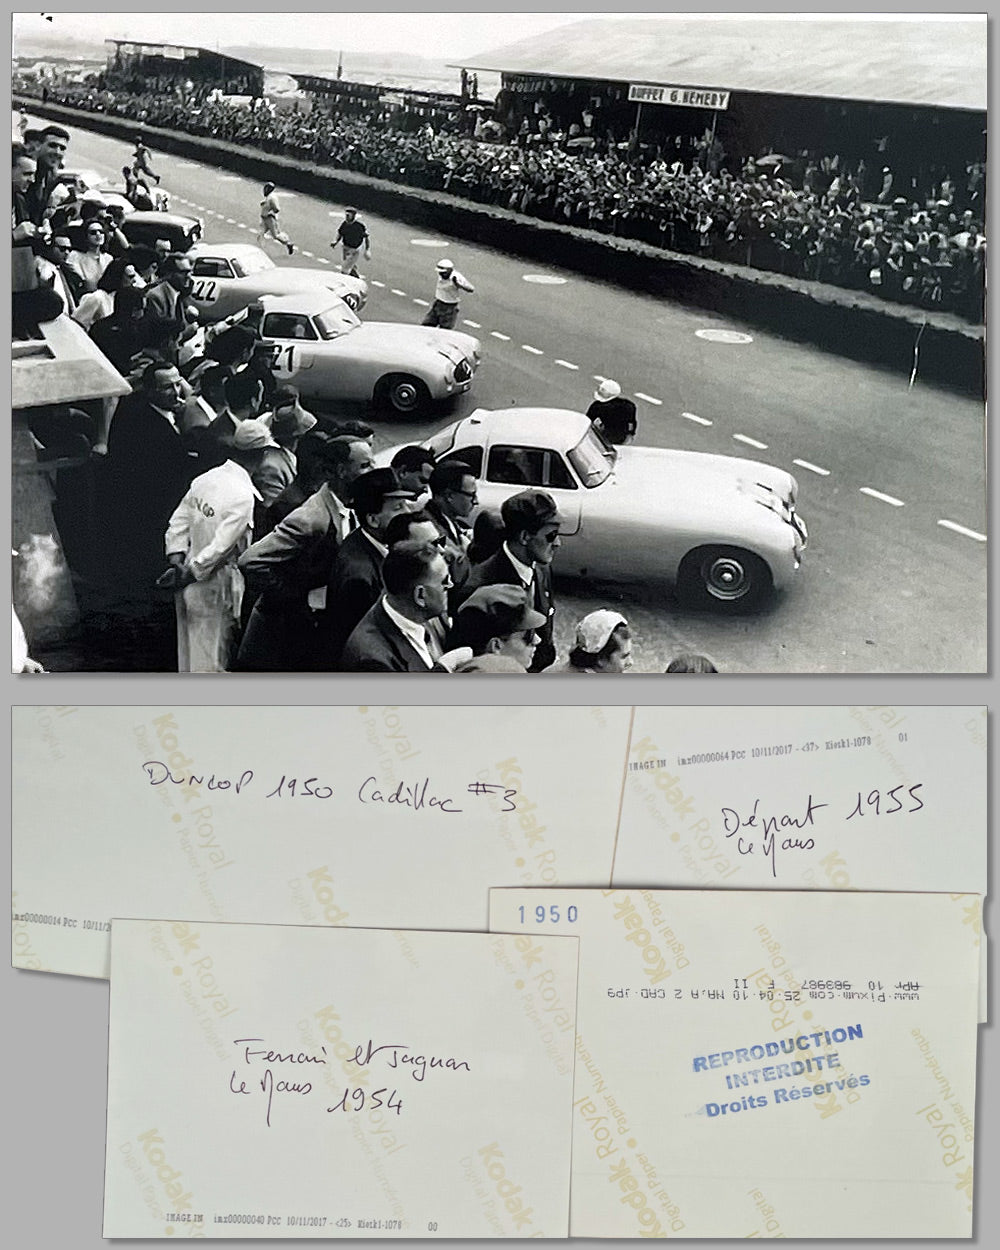 BUFFET G. NEMERY
22
21
DUNLOP
Kodak Royal
Digital Paper • Papier Numérique
Dunlop 1950 Cadillac #3
imx00000014 PCC 10/11/2
IMAGE IN imx00000064 PCC 10/11/2017 - <37> Kiosk1-1078 01
Départ 1955
Le Mans
1950
www.Pixum.com 25.04.10 MA.A 2 CAD.JPG
APr 10 983987 F II
REPRODUCTION
INTERDITE
Droits Réservés
Ferrari et Jaguar
Le Mans 1954
IMAGE IN imx00000040 PCC 10/11/2017 - <25> Kiosk1-1078 00